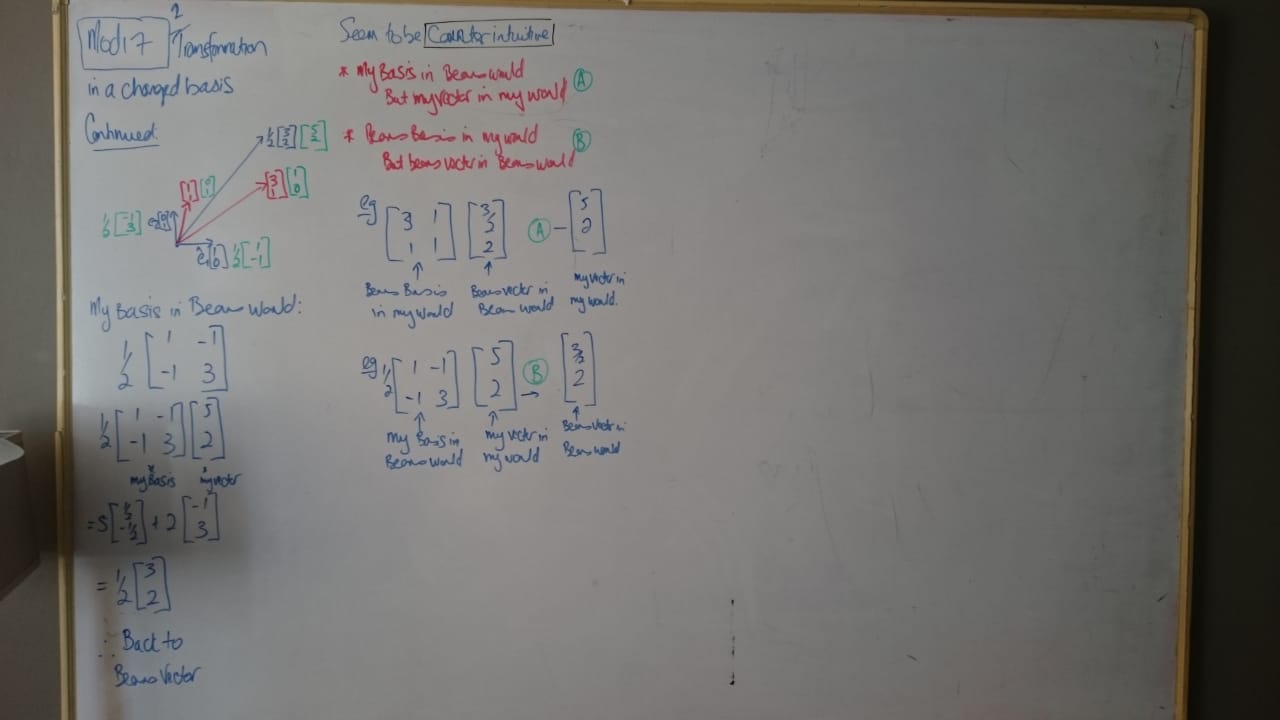 Mod 17
2
Transformation
in a changed basis
Continued:
½ [3 2] [5 2]
[1 1] [0 1]
[3 1] [1 0]
½ [-1 3] ê₂ [0 1]
ê₁ [1 0] ½ [1 -1]
My Basis in Bears World:
½ [1 -1
-1 3]
½ [1 -1
-1 3] [5
2]
my Basis my vector
= 5 [½
-½] + 2 [-1
3]
= ½ [3
2]
∴ Back to
Bears Vector
Seem to be Counter intuitive
* My Basis in Bears world
But my vector in my world A
* Bears Basis in my world
But bears vector in Bears world B
eg [3 1
1 1] [3/2
2] A – [5
2]
Bears Basis
in my world
Bears vector in
Bears world
my vector in
my world.
eg ½ [1 -1
-1 3] [5
2] → B [3/2
2]
My Basis in
Bears world
my vector in
my world
Bears Vector in
Bears world